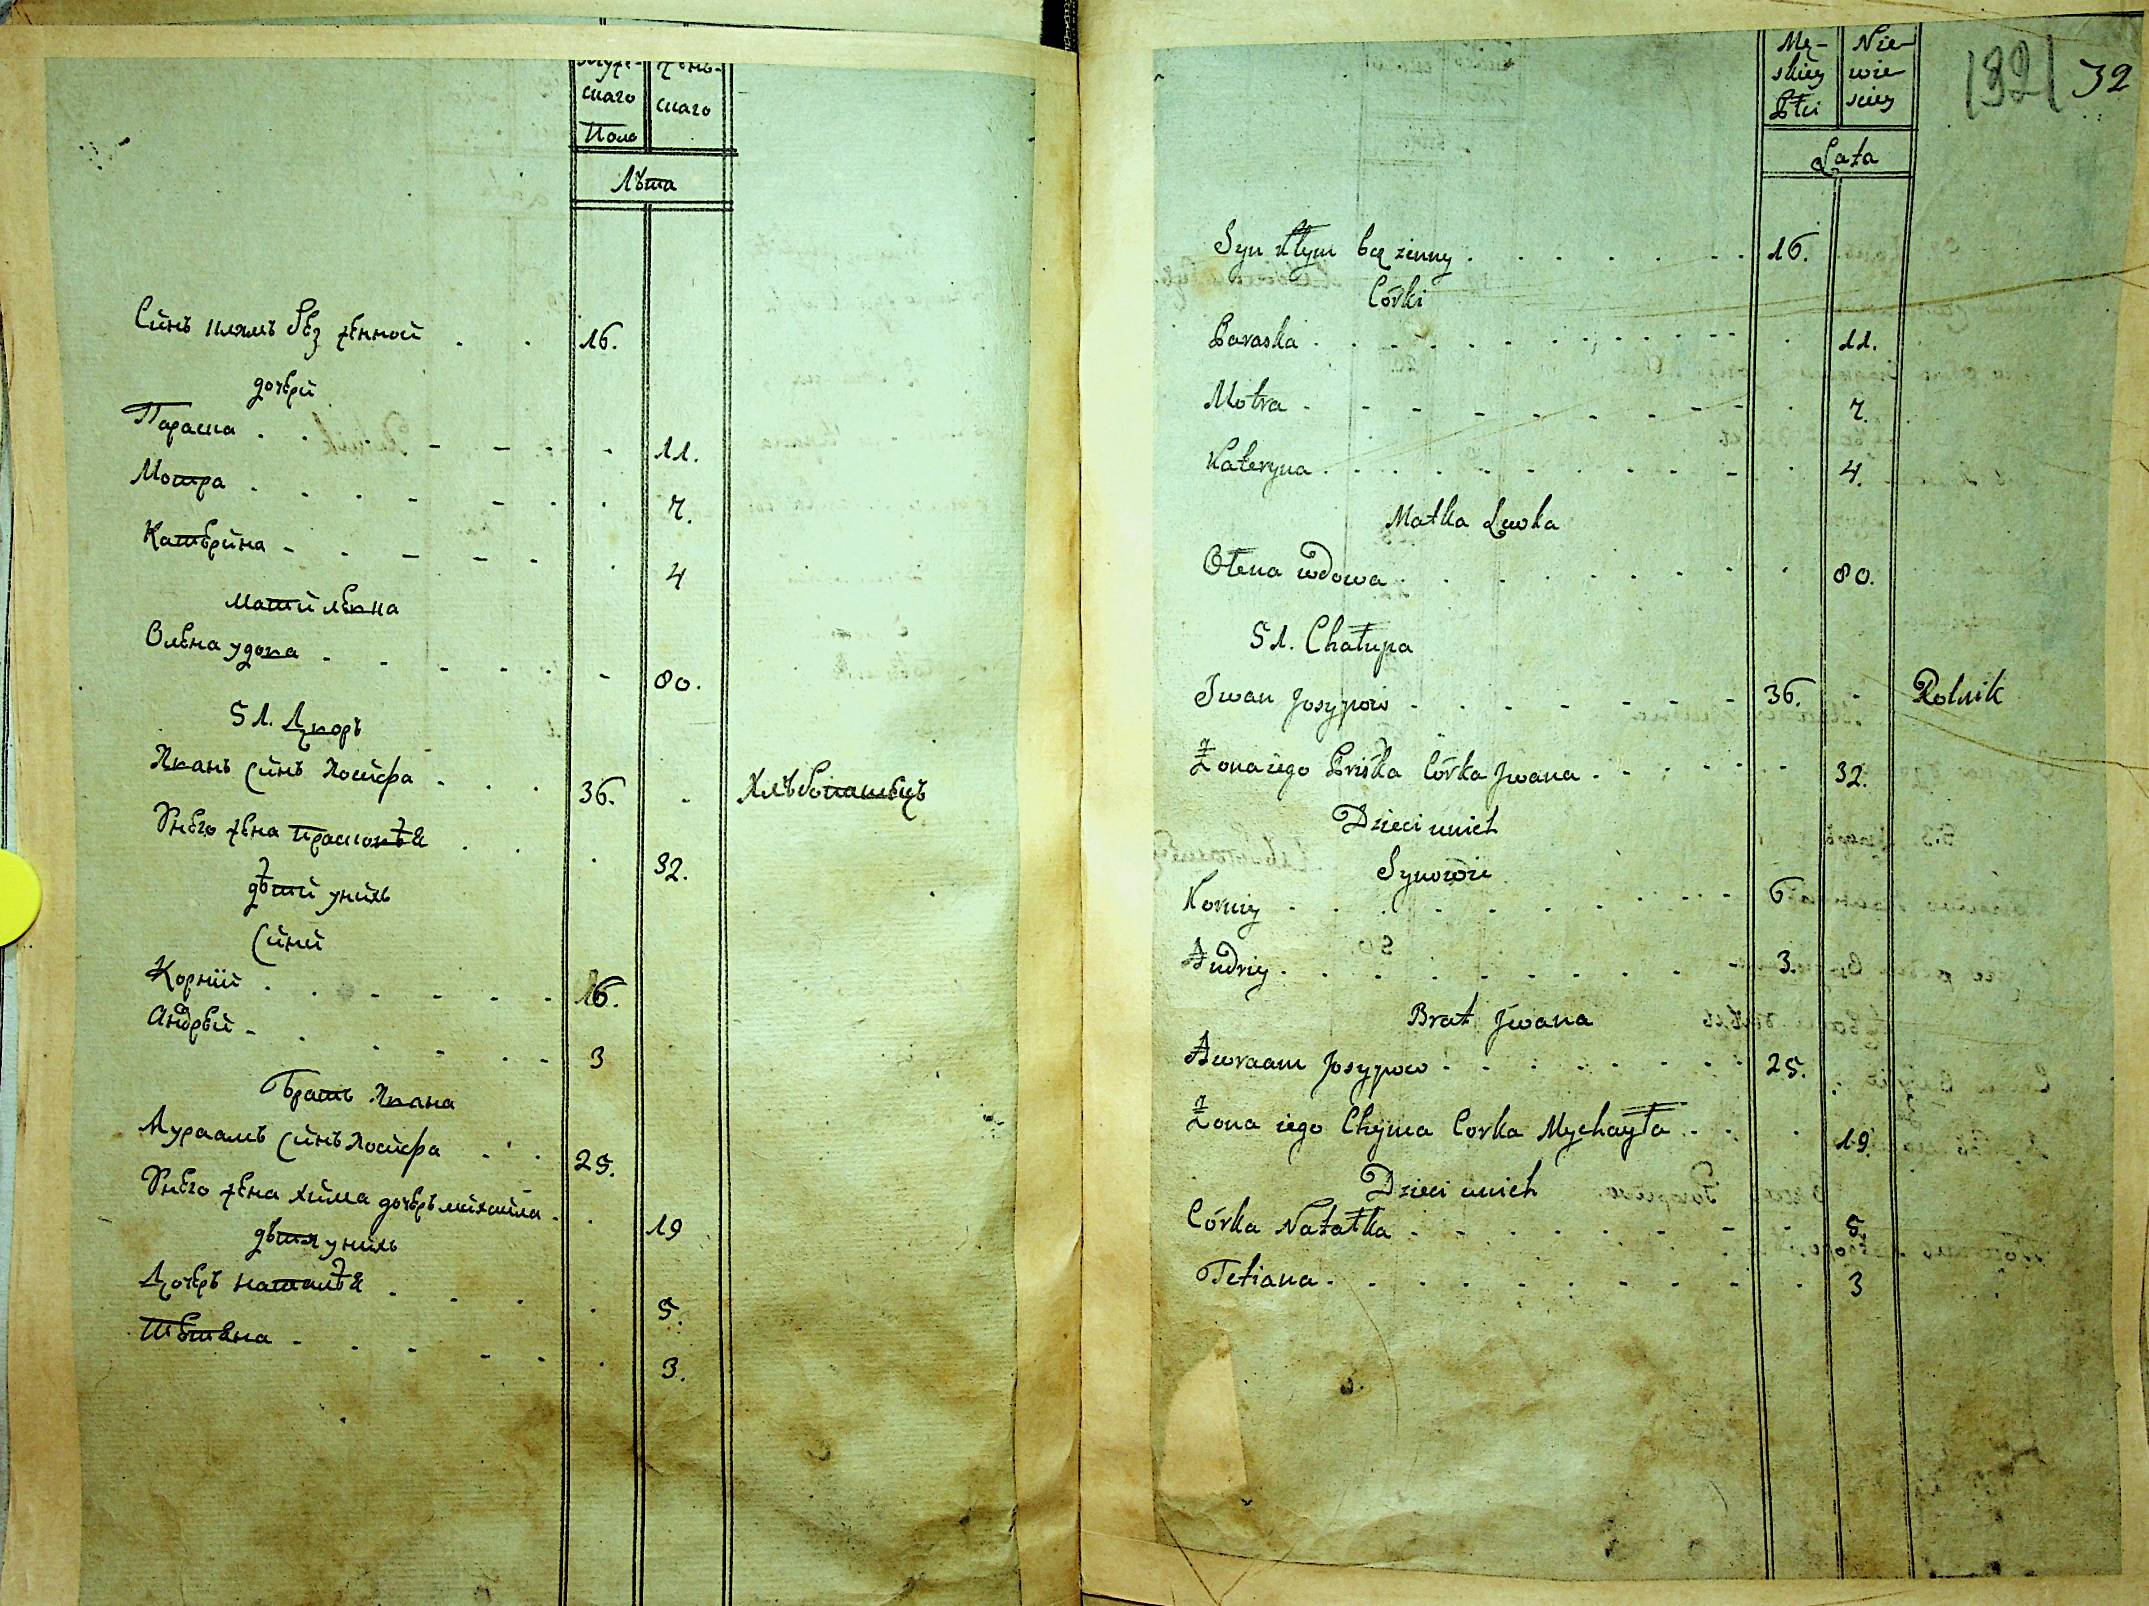 Муже-
скаго
Пола
жень-
скаго
Лѣта
Синъ климъ без женной . . 16.
дочери
Параска . . . - - - . 11.
Мотра . . . . - - . . 7.
Катерина - . - - - . 4
мати лвка
Олена удова . - - - - - 80.
51. Дворъ
Иванъ синъ Иосифа . . . 36. . Хлѣбопашецъ
Унего жена . . . 32.
дѣти унихъ
сини
Корнїй . . . - - - 16.
Андрей - . . - - . - 3
Братъ Ивана
Авраамъ синъ Иосифа . . . 25.
Унего жена хима дочеръ михайла . . 19
дѣтя унихъ
Дочеръ наталѣя . . . . 5.
Тетяна - . - . - - . 3.
Mę-
skiey
Płci
Nie-
wie
sciey
132 32
Lata
Syn Kłym bez żenny . . . . . . . 16.
Córki
Paraska . . . . . . . . . . . 11.
Motra . - - - - - - - - . 7.
Kateryna . . . . . . . . . - . 4.
Matka Lewka
Ołena wdowa . . . . . . - - . 80.
51. Chałupa
Iwan Josypow . . . . . - - - 36. - Rolnik
Żona iego Priśka Córka Jwana . - . . - - 32.
Dzieci unich
Synowie
Korniy . . . . . . . . - - - 6
Andriy . . . . . . . . - - 3.
Brat Jwana
Awraam Josypow . . - . . . . . 25.
Żona iego Chyma Corka Mychayła . . . . 19.
Dzieci unich
Córka Natałka . . - - - . - . 5.
Tetiana . . . . . . . . . . 3